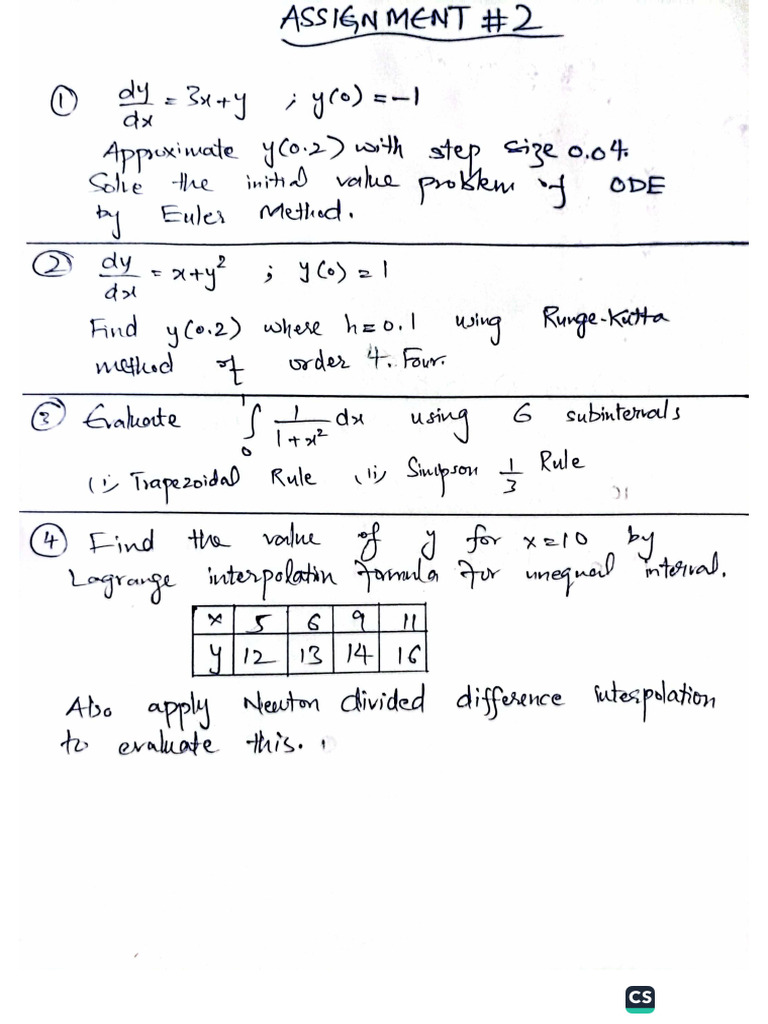 ASSIGNMENT #2
① dy/dx = 3x+y ; y(0) = -1
Approximate y(0.2) with step size 0.04.
Solve the initial value problem of ODE
by Euler Method.
② dy/dx = x+y² ; y(0) = 1
Find y(0.2) where h=0.1 using Runge-Kutta
method of order 4. Four.
③ Evaluate ∫₀¹ 1/(1+x²) dx using 6 subintervals
(i) Trapezoidal Rule (ii) Simpson 1/3 Rule
④ Find the value of y for x=10 by
Lagrange interpolatin formula for unequal interval.
x 5 6 9 11
y 12 13 14 16
Also apply Newton divided difference interpolation
to evaluate this.
CS